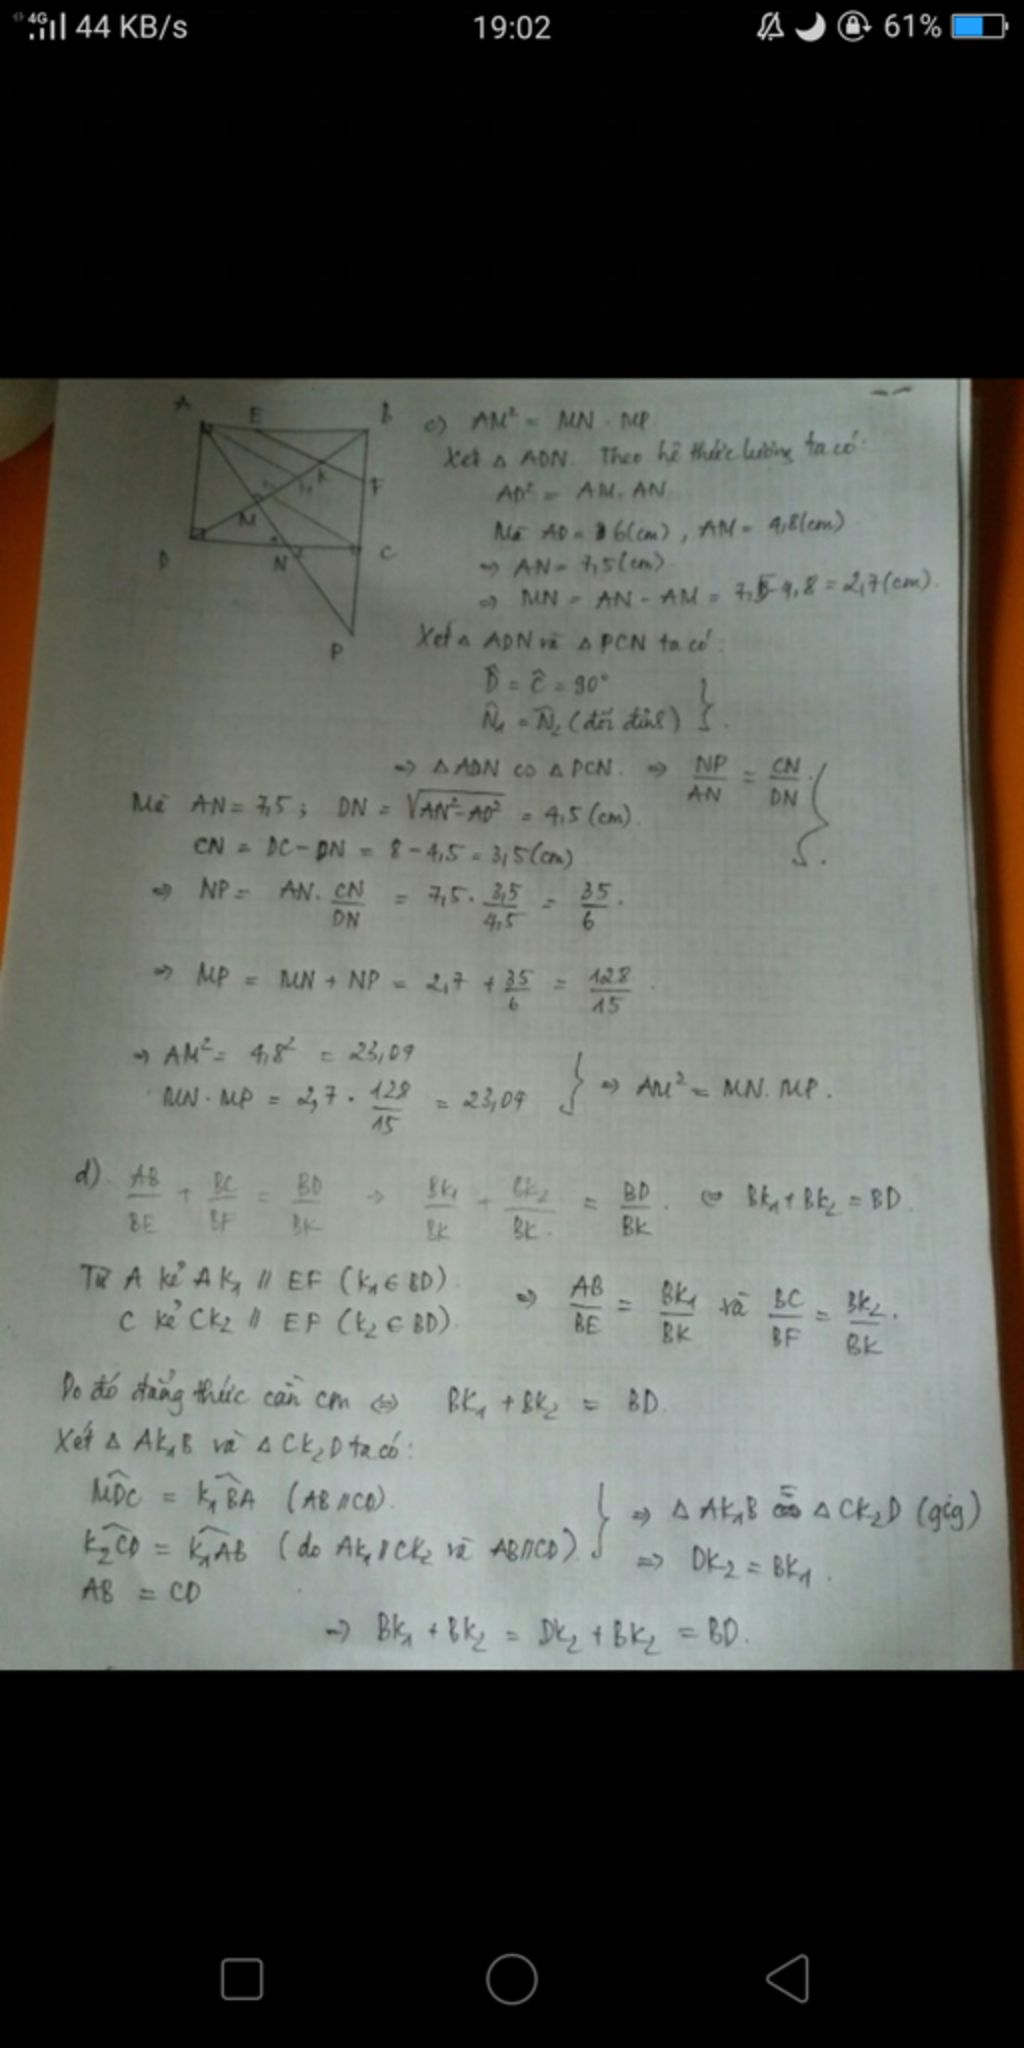 4G 44 KB/s 19:02 61%
A E B
K F
M
D N C
P
c) AM² = MN . MP
Xét △ ADN. Theo hệ thức lượng ta có
AD² = AM. AN
Mà AD = 6(cm), AM = 4,8(cm)
⇒ AN = 7,5(cm)
⇒ MN = AN - AM = 7,5 - 4,8 = 2,7(cm).
Xét △ ADN và △ PCN ta có:
D̂ = Ĉ = 90°
N̂₁ = N̂₂ (đối đỉnh) }.
⇒ △ ADN ∽ △ PCN. ⇒ NP/AN = CN/DN
Mà AN = 7,5; DN = √(AN² - AD²) = 4,5(cm).
CN = DC - DN = 8 - 4,5 = 3,5(cm)
⇒ NP = AN. CN/DN = 7,5. 3,5/4,5 = 35/6.
⇒ MP = MN + NP = 2,7 + 35/6 = 128/15.
⇒ AM² = 4,8² = 23,04
MN. MP = 2,7. 128/15 = 23,04 } ⇒ AM² = MN. MP.
d). AB/BE + BC/BF = BD/BK ⇒ BK₁/BK + BK₂/BK. = BD/BK. ⇔ BK₁ + BK₂ = BD.
Từ A kẻ AK₁ // EF (K₁ ∈ BD).
C kẻ CK₂ // EF (K₂ ∈ BD). ⇒ AB/BE = BK₁/BK và BC/BF = BK₂/BK.
Do đó đẳng thức cần cm ⇔ BK₁ + BK₂ = BD.
Xét △ AK₁B và △ CK₂D ta có:
MDC = K₁BA (AB//CD).
K₂CD = K₁AB (do AK₁//CK₂ và AB//CD).
AB = CD
} ⇒ △ AK₁B = △ CK₂D (gcg)
⇒ DK₂ = BK₁.
⇒ BK₁ + BK₂ = DK₂ + BK₂ = BD.